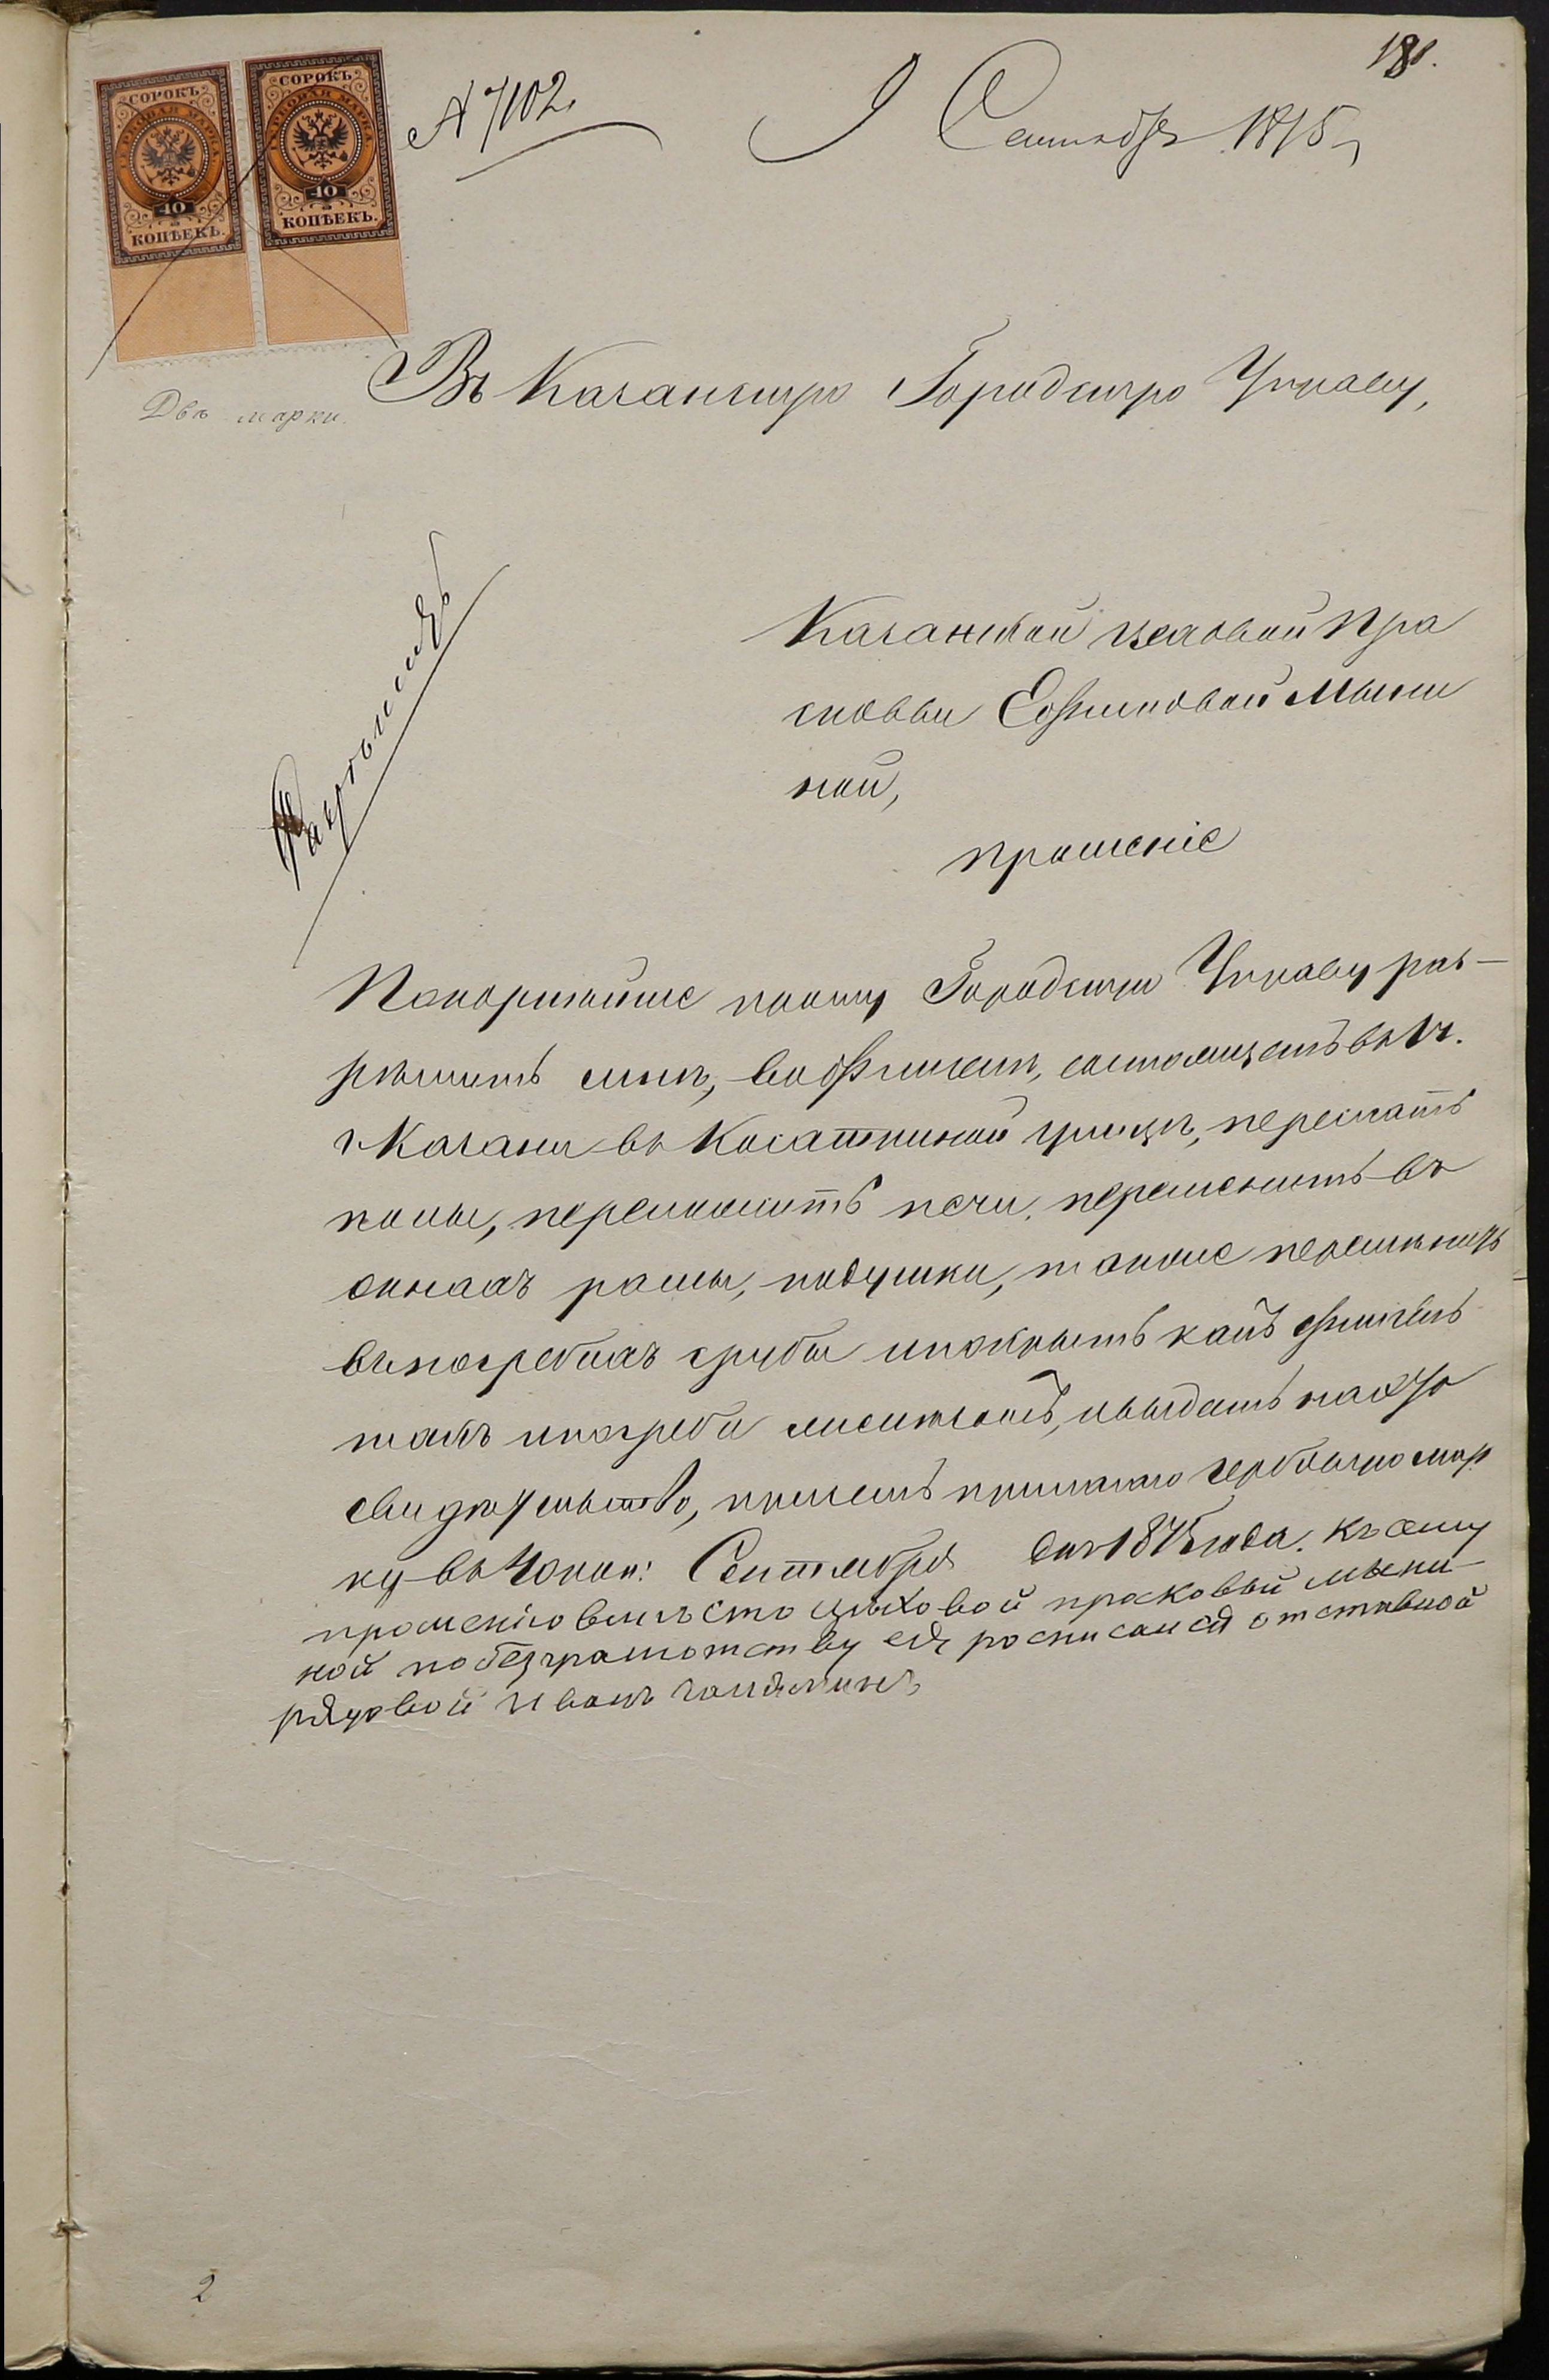 181.
СОРОКЪ
ГЕРБОВАЯ МАРКА.
40
КОПѢЕКЪ.
СОРОКЪ
ГЕРБОВАЯ МАРКА.
40
КОПѢЕКЪ.
№ 7102.
9 Сентября 1875 г.
Двѣ марки.
Въ Казанскую Городскую Управу,
Казанской цеховой Пра
сковьи Ефимовой Мыки
ной,
прошеніе
Покорнѣйше прошу Городскую Управу раз-
рѣшить мнѣ, во флигелѣ, состоящемъ въ 1 ч.
г. Казани въ Касаткиной улицѣ, перестлать
полы, переложить печи, переменить въ
окнахъ рамы, подушки, также перемѣнить
въ погребахъ срубы и покрыть какъ флигель
такъ и погреба желѣзомъ, и выдать на это
свидѣтельство, при чемъ прилагаю гербовую мар
ку въ 40 коп: Сентября дня 1875 года. Къ сему
прошенію вместо цеховой прасковьи мыки
ной по безграмотству её росписался отставной
рядовой Иванъ
2